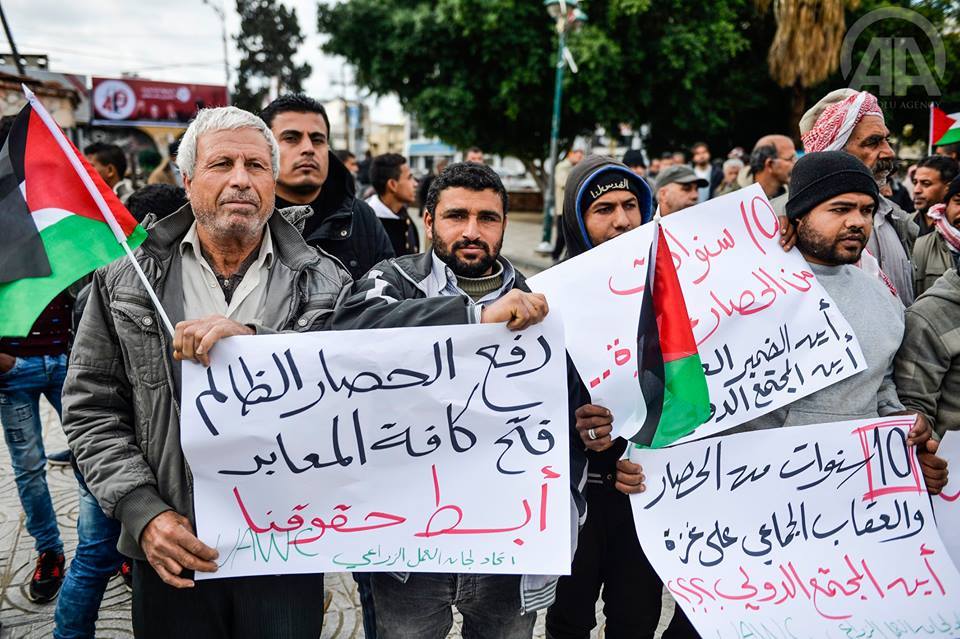 رفع الحصار الظالم
فتح كافة المعابر
أبسط حقوقنا
UAWC
اتحاد لجان العمل الزراعي
10 سنوات
من الحصار
أين الضمير
أين المجتمع
10 سنوات من الحصار
والعقاب الجماعي على غزة
أين المجتمع الدولي ؟؟؟؟
AA